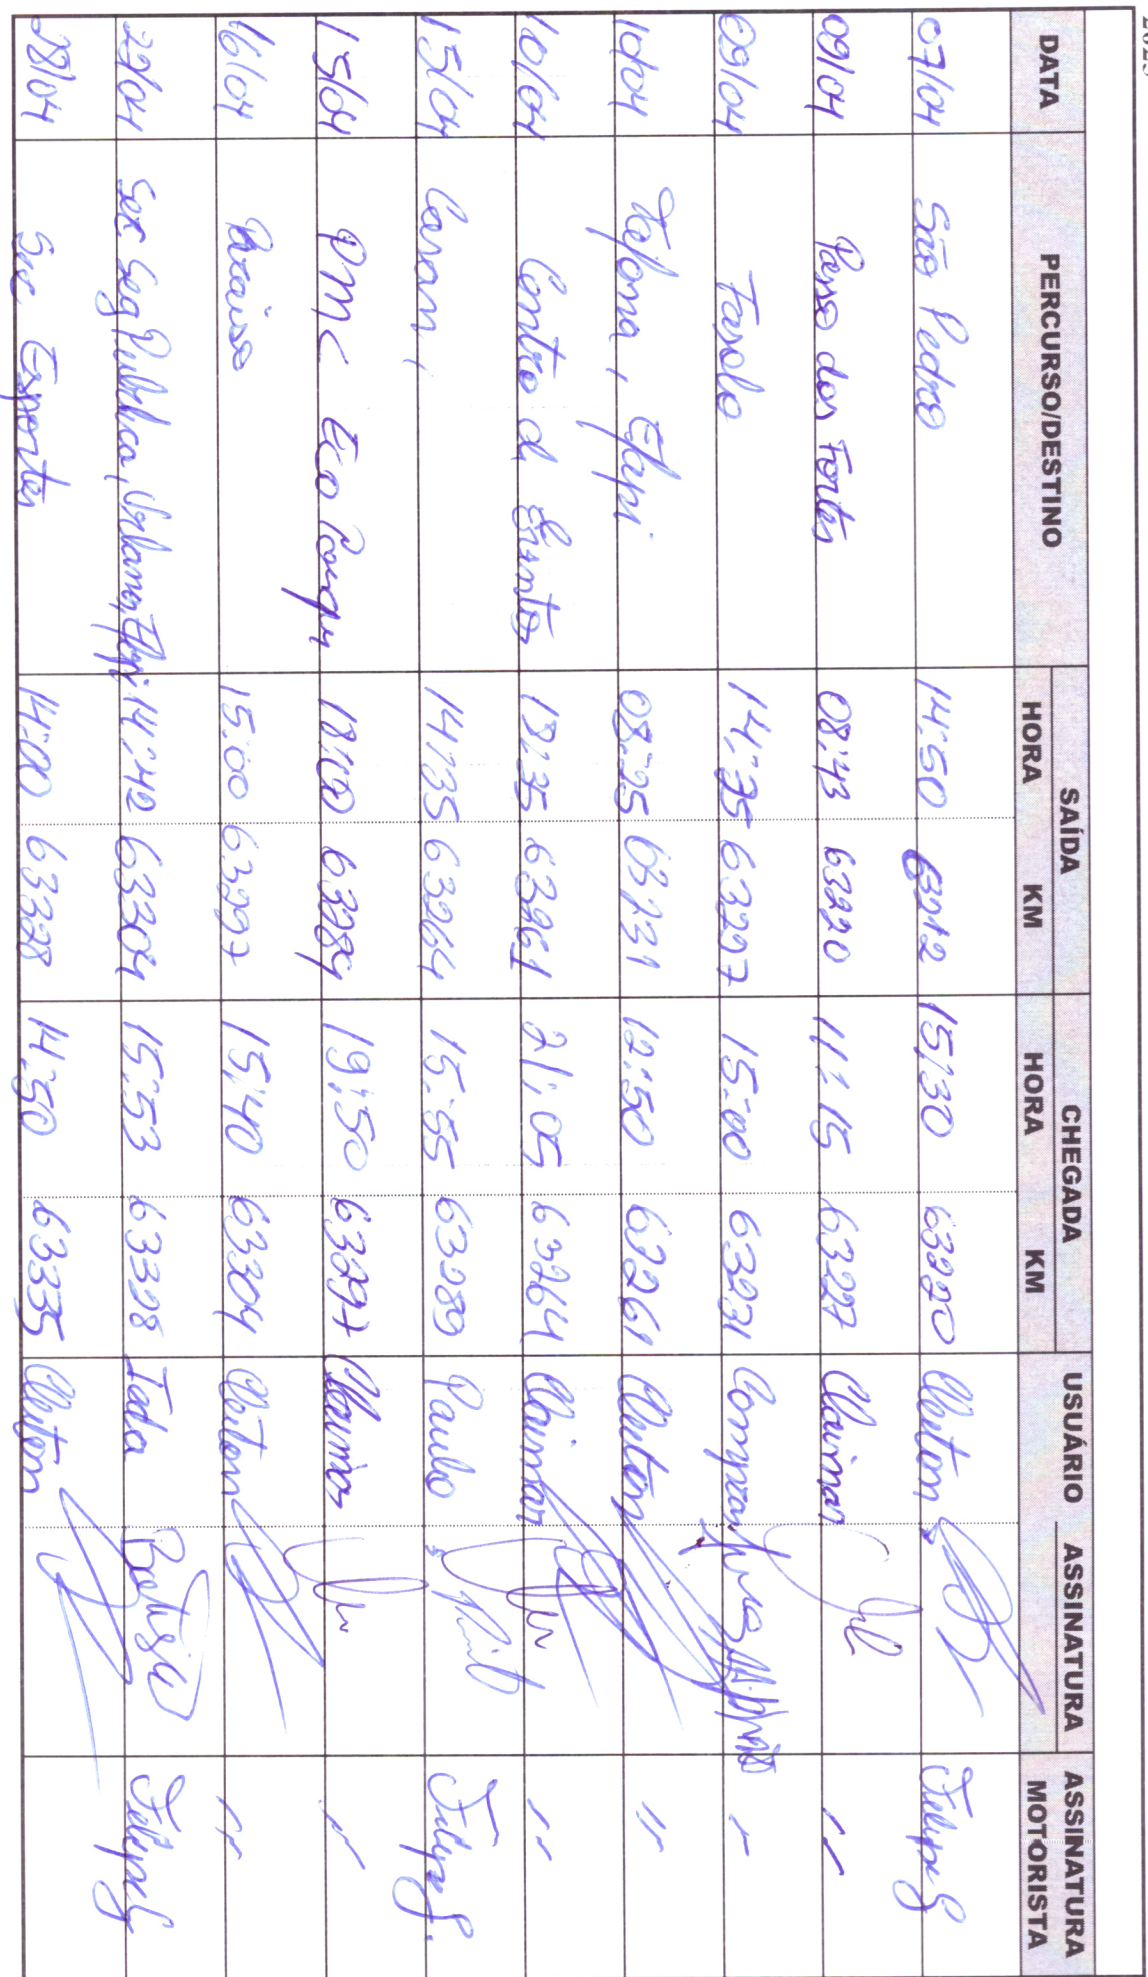 2025
DATA PERCURSO/DESTINO SAÍDA CHEGADA USUÁRIO ASSINATURA ASSINATURA MOTORISTA
HORA KM HORA KM
07/04 São Pedro 14:50 63212 15:30 63220 Cleiton Felipe S
09/04 Passo dos Fortes 08:43 63220 11:15 63227 Cleimar "
09/04 14:35 63227 15:00 63231 "
10/04 Efapi 08:25 63231 12:50 63261 Cleiton "
10/04 Centro d Eventos 13:35 63261 21:05 63264 Cleimar "
15/04 Casan, 14:35 63264 15:55 63289 Paulo Felipe S.
15/04 PMC Eco Parque 18:00 63289 19:50 63297 Cleimar "
16/04 15:00 63297 15:40 63304 Cleiton "
22/04 Sec Seg Publica, Efapi 14:42 63304 15:53 63328 Batista Felipe S
28/04 Sec Esportes 14:00 63328 14:50 63335 Cleiton